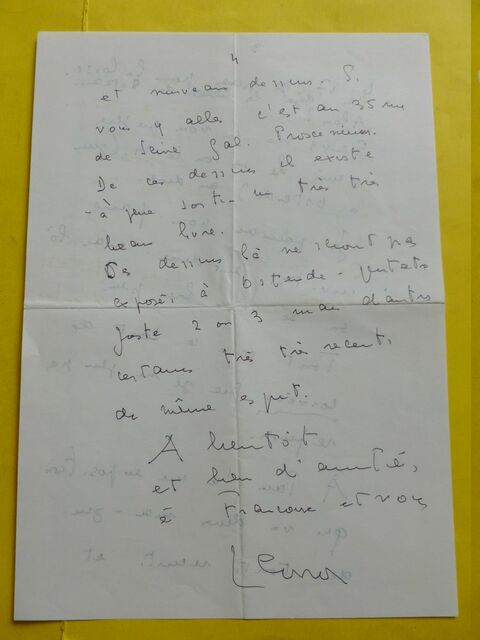 4
et nouveaux dessins. Si
vous y allez c'est au 35 rue
de Seine Gal. Proscenium.
De ces dessins il existe
- à peine sorti - un très très
beau livre.
Ces dessins là ne seront pas
exposés à Ostende -
juste 2 ou 3 mais d'autres
certains très très recents,
du même esprit.
A bientôt
et bien d'amitié,
à Françoise et vous
Leonor